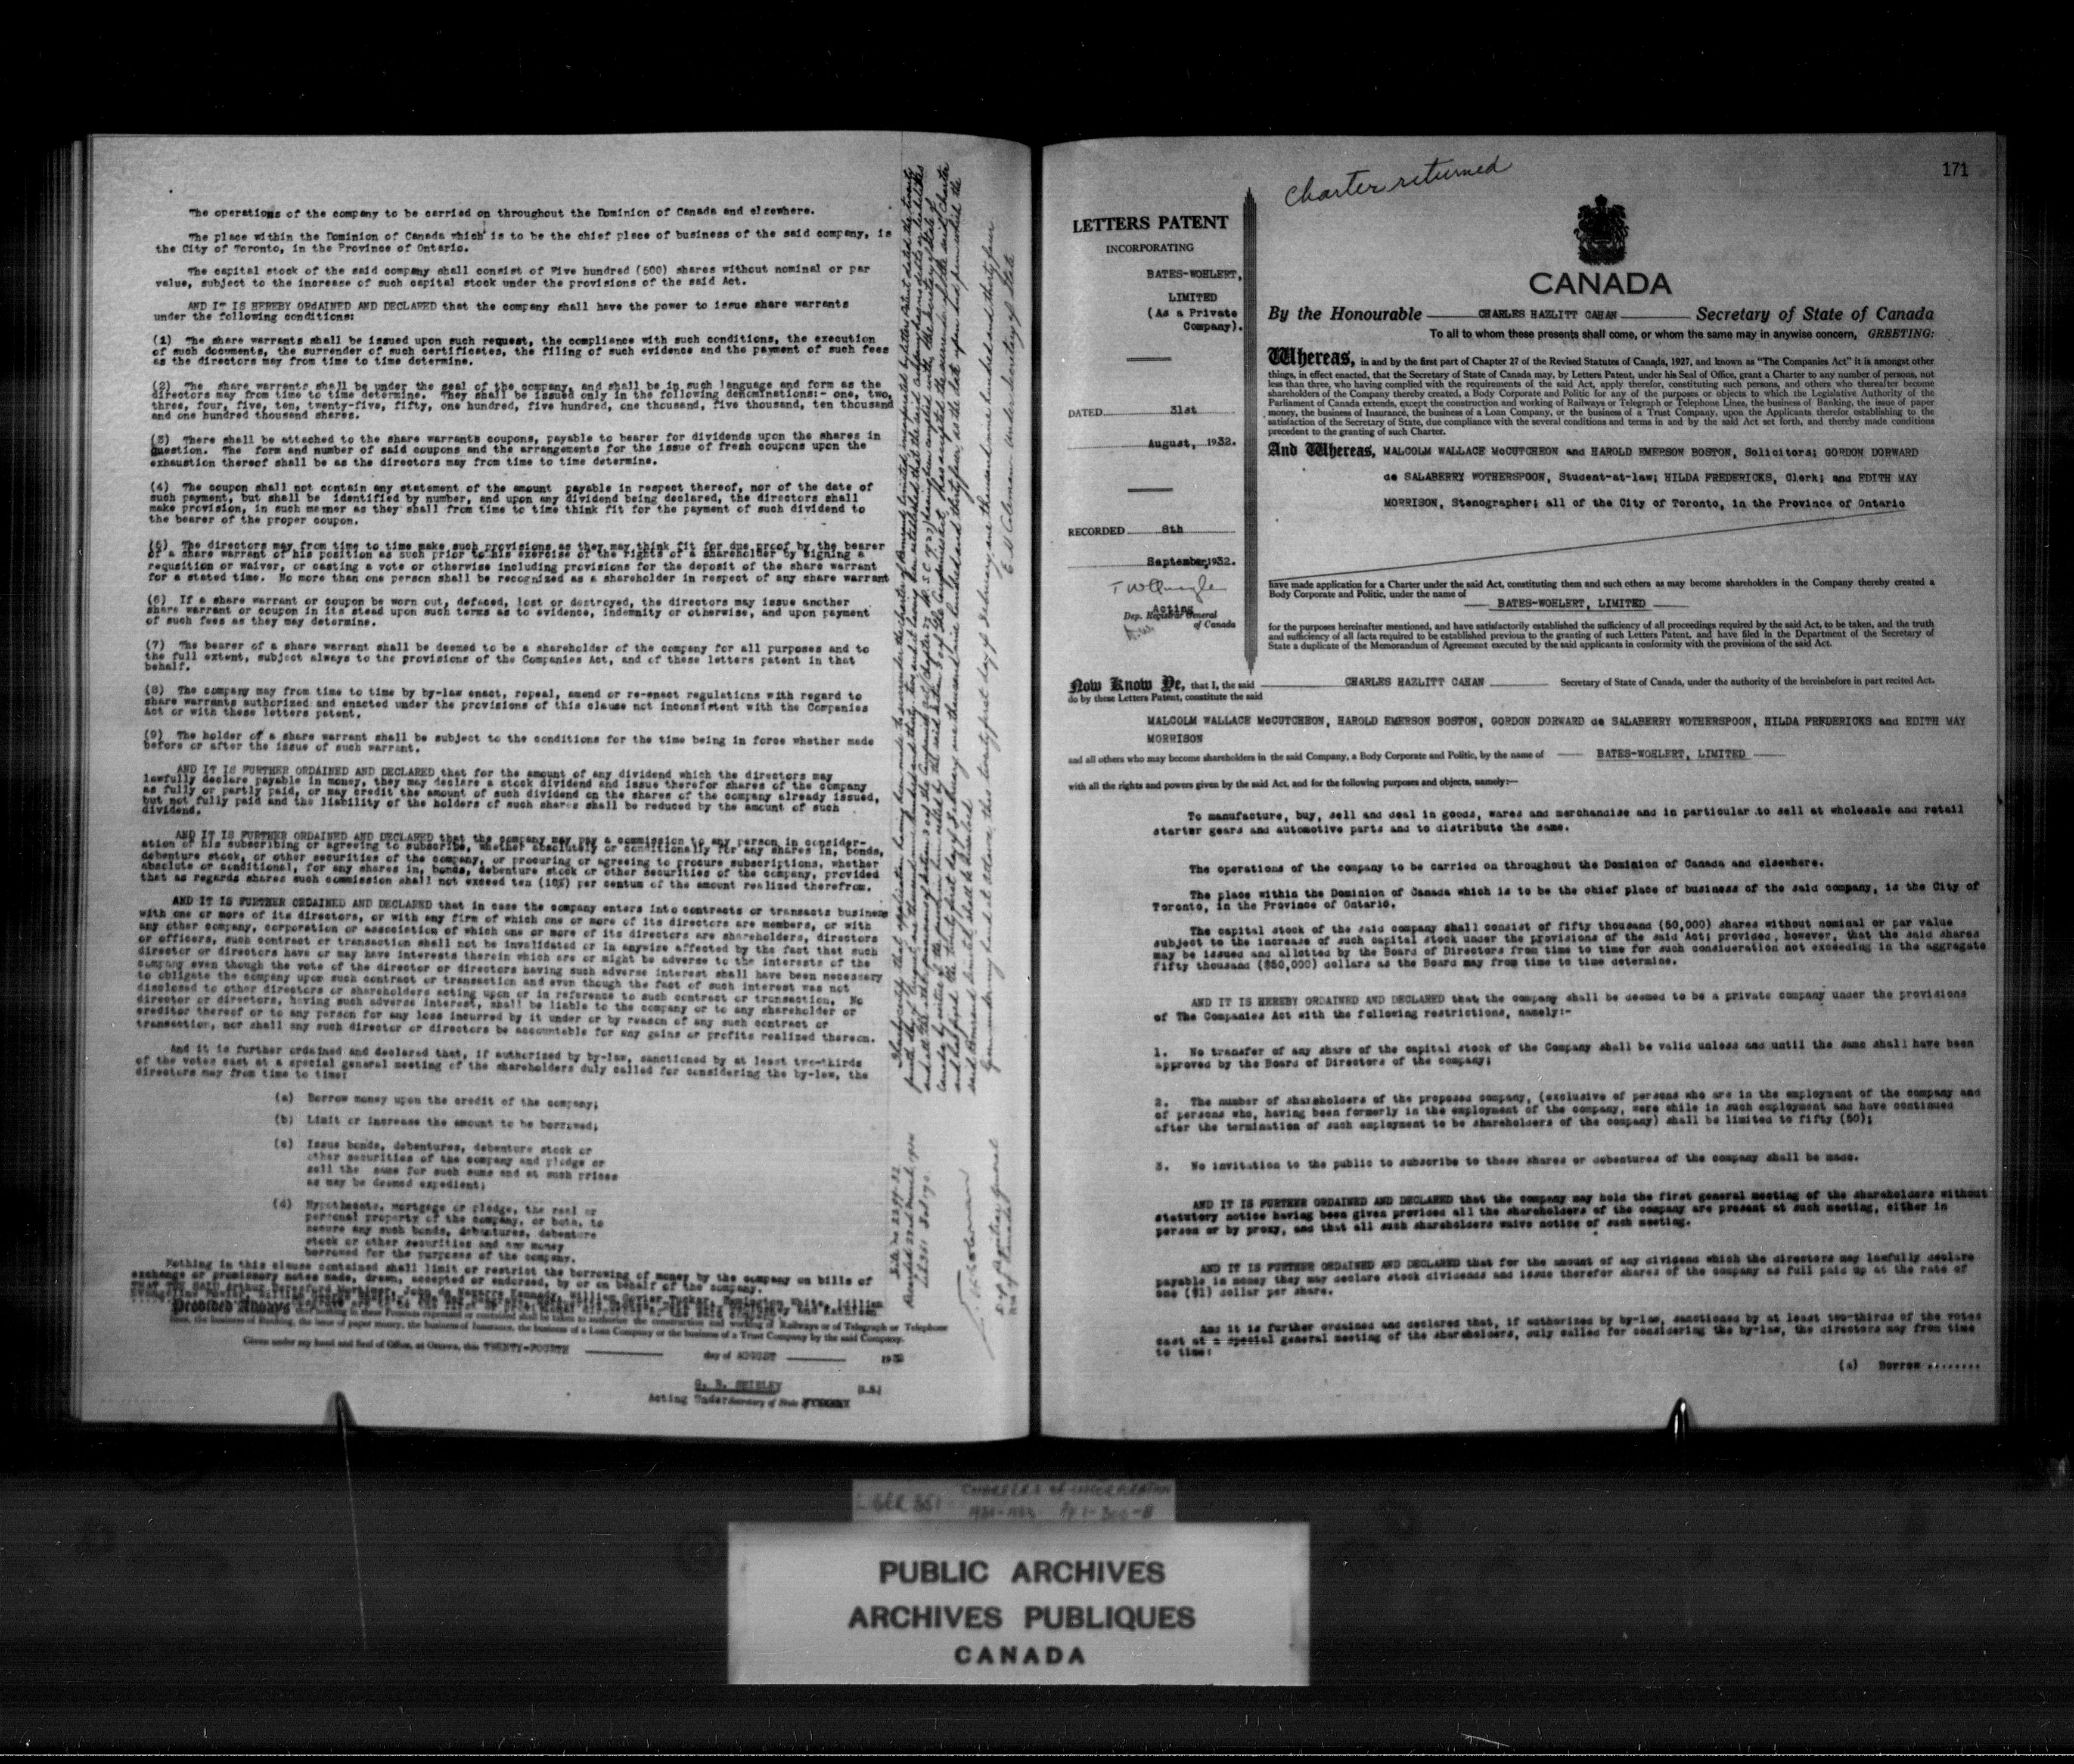 The operations of the company to be carried on throughout the Dominion of Canada and elsewhere.
The place within the Dominion of Canada which is to be the chief place of business of the said company, is
the City of Toronto, in the Province of Ontario.
The capital stock of the said company shall consist of Five hundred (500) shares without nominal or par
value, subject to the increase of such capital stock under the provisions of the said Act.
AND IT IS HEREBY ORDAINED AND DECLARED that the company shall have the power to issue share warrants
under the following conditions:
(1) The share warrants shall be issued upon such request, the compliance with such conditions, the execution
of such documents, the surrender of such certificates, the filing of such evidence and the payment of such fees
as the directors may from time to time determine.
(2) The share warrants shall be under the seal of the company, and shall be in such language and form as the
directors may from time to time determine. They shall be issued only in the following denominations:- one, two,
three, four, five, ten, twenty-five, fifty, one hundred, five hundred, one thousand, five thousand, ten thousand
and one hundred thousand shares.
(3) There shall be attached to the share warrants coupons, payable to bearer for dividends upon the shares in
question. The form and number of said coupons and the arrangements for the issue of fresh coupons upon the
exhaustion thereof shall be as the directors may from time to time determine.
(4) The coupon shall not contain any statement of the amount payable in respect thereof, nor of the date of
such payment, but shall be identified by number, and upon any dividend being declared, the directors shall
make provision, in such manner as they shall from time to time think fit for the payment of such dividend to
the bearer of the proper coupon.
(5) The directors may from time to time make such provisions as they may think fit for due proof by the bearer
of a share warrant of his position as such prior to his exercise of the rights of a shareholder by signing a
requsition or waiver, or casting a vote or otherwise including provisions for the deposit of the share warrant
for a stated time. No more than one person shall be recognized as a shareholder in respect of any share warrant
(6) If a share warrant or coupon be worn out, defaced, lost or destroyed, the directors may issue another
share warrant or coupon in its stead upon such terms as to evidence, indemnity or otherwise, and upon payment
of such fees as they may determine.
(7) The bearer of a share warrant shall be deemed to be a shareholder of the company for all purposes and to
the full extent, subject always to the provisions of the Companies Act, and of these letters patent in that
behalf.
(8) The company may from time to time by by-law enact, repeal, amend or re-enact regulations with regard to
share warrants authorized and enacted under the provisions of this clause not inconsistent with the Companies
Act or with these letters patent.
(9) The holder of a share warrant shall be subject to the conditions for the time being in force whether made
before or after the issue of such warrant.
AND IT IS FURTHER ORDAINED AND DECLARED that for the amount of any dividend which the directors may
lawfully declare payable in money, they may declare a stock dividend and issue therefor shares of the company
as fully or partly paid, or may credit the amount of such dividend on the shares of the company already issued,
but not fully paid and the liability of the holders of such shares shall be reduced by the amount of such
dividend.
AND IT IS FURTHER ORDAINED AND DECLARED that the company may pay a commission to any person in consider-
ation of his subscribing or agreeing to subscribe, whether absolutely or conditionally for any shares in, bonds,
debenture stock, or other securities of the company, or procuring or agreeing to procure subscriptions, whether
absolute or conditional, for any shares in, bonds, debenture stock or other securities of the company, provided
that as regards shares such commission shall not exceed ten (10%) per centum of the amount realized therefrom.
AND IT IS FURTHER ORDAINED AND DECLARED that in case the company enters into contracts or transacts business
with one or more of its directors, or with any firm of which one or more of its directors are members, or with
any other company, corporation or association of which one or more of its directors are shareholders, directors
or officers, such contract or transaction shall not be invalidated or in anywise affected by the fact that such
director or directors have or may have interests therein which are or might be adverse to the interests of the
company even though the vote of the director or directors having such adverse interest shall have been necessary
to obligate the company upon such contract or transaction and even though the fact of such interest was not
disclosed to other directors or shareholders acting upon or in reference to such contract or transaction. No
director or directors, having such adverse interest, shall be liable to the company or to any shareholder or
creditor thereof or to any person for any loss incurred by it under or by reason of any such contract or
transaction, nor shall any such director or directors be accountable for any gains or profits realized thereon.
And it is further ordained and declared that, if authorized by by-law, sanctioned by at least two-thirds
of the votes cast at a special general meeting of the shareholders duly called for considering the by-law, the
directors may from time to time:
(a) Borrow money upon the credit of the company;
(b) Limit or increase the amount to be borrowed;
(c) Issue bonds, debentures, debenture stock or
other securities of the company and pledge or
sell the same for such sums and at such prices
as may be deemed expedient;
(d) Hypothecate, mortgage or pledge, the real or
personal property of the company, or both, to
secure any such bonds, debentures, debenture
stock or other securities and any money
borrowed for the purposes of the company.
Nothing in this clause contained shall limit or restrict the borrowing of money by the company on bills of
exchange or promissory notes made, drawn, accepted or endorsed, by or on behalf of the company.
THAT THE SAID
Provided Always
lines, the business of Banking, the issue of paper money, the business of Insurance, the business of a Loan Company or the business of a Trust Company by the said Company.
Given under my hand and Seal of Office, at Ottawa, this TWENTY-FOURTH day of AUGUST 1932
[L.S.]
Acting Under Secretary of State
E. H. Coleman Under Secretary of State
171
Charter returned
LETTERS PATENT
INCORPORATING
BATES-WOHLERT,
LIMITED
(As a Private
Company).
DATED 31st
August, 1932.
RECORDED 8th
September, 1932.
Acting
Dep. Registrar General
of Canada
CANADA
By the Honourable CHARLES HAZLITT CAHAN Secretary of State of Canada
To all to whom these presents shall come, or whom the same may in anywise concern, GREETING:
Whereas, in and by the first part of Chapter 27 of the Revised Statutes of Canada, 1927, and known as "The Companies Act" it is amongst other
things, in effect enacted, that the Secretary of State of Canada may, by Letters Patent, under his Seal of Office, grant a Charter to any number of persons, not
less than three, who having complied with the requirements of the said Act, apply therefor, constituting such persons, and others who thereafter become
shareholders of the Company thereby created, a Body Corporate and Politic for any of the purposes or objects to which the Legislative Authority of the
Parliament of Canada extends, except the construction and working of Railways or Telegraph or Telephone Lines, the business of Banking, the issue of paper
money, the business of Insurance, the business of a Loan Company, or the business of a Trust Company, upon the Applicants therefor establishing to the
satisfaction of the Secretary of State, due compliance with the several conditions and terms in and by the said Act set forth, and thereby made conditions
precedent to the granting of such Charter.
And Whereas, MALCOLM WALLACE McCUTCHEON and HAROLD EMERSON BOSTON, Solicitors; GORDON DORWARD
de SALABERRY WOTHERSPOON, Student-at-law; HILDA FREDERICKS, Clerk; and EDITH MAY
MORRISON, Stenographer; all of the City of Toronto, in the Province of Ontario
have made application for a Charter under the said Act, constituting them and such others as may become shareholders in the Company thereby created a
Body Corporate and Politic, under the name of
BATES-WOHLERT, LIMITED
for the purposes hereinafter mentioned, and have satisfactorily established the sufficiency of all proceedings required by the said Act, to be taken, and the truth
and sufficiency of all facts required to be established previous to the granting of such Letters Patent, and have filed in the Department of the Secretary of
State a duplicate of the Memorandum of Agreement executed by the said applicants in conformity with the provisions of the said Act.
Now Know Ye, that I, the said CHARLES HAZLITT CAHAN Secretary of State of Canada, under the authority of the hereinbefore in part recited Act,
do by these Letters Patent, constitute the said
MALCOLM WALLACE McCUTCHEON, HAROLD EMERSON BOSTON, GORDON DORWARD de SALABERRY WOTHERSPOON, HILDA FREDERICKS and EDITH MAY
MORRISON
and all others who may become shareholders in the said Company, a Body Corporate and Politic, by the name of BATES-WOHLERT, LIMITED
with all the rights and powers given by the said Act, and for the following purposes and objects, namely:—
To manufacture, buy, sell and deal in goods, wares and merchandise and in particular to sell at wholesale and retail
starter gears and automotive parts and to distribute the same.
The operations of the company to be carried on throughout the Dominion of Canada and elsewhere.
The place within the Dominion of Canada which is to be the chief place of business of the said company, is the City of
Toronto, in the Province of Ontario.
The capital stock of the said company shall consist of fifty thousand (50,000) shares without nominal or par value
subject to the increase of such capital stock under the provisions of the said Act; provided, however, that the said shares
may be issued and allotted by the Board of Directors from time to time for such consideration not exceeding in the aggregate
fifty thousand ($50,000) dollars as the Board may from time to time determine.
AND IT IS HEREBY ORDAINED AND DECLARED that the company shall be deemed to be a private company under the provisions
of The Companies Act with the following restrictions, namely:-
1. No transfer of any share of the capital stock of the Company shall be valid unless and until the same shall have been
approved by the Board of Directors of the company;
2. The number of shareholders of the proposed company, (exclusive of persons who are in the employment of the company and
of persons who, having been formerly in the employment of the company, were while in such employment and have continued
after the termination of such employment to be shareholders of the company) shall be limited to fifty (50);
3. No invitation to the public to subscribe to these shares or debentures of the company shall be made.
AND IT IS FURTHER ORDAINED AND DECLARED that the company may hold the first general meeting of the shareholders without
statutory notice having been given provided all the shareholders of the company are present at such meeting, either in
person or by proxy, and that all such shareholders waive notice of such meeting.
AND IT IS FURTHER ORDAINED AND DECLARED that for the amount of any dividend which the directors may lawfully declare
payable in money they may declare stock dividends and issue therefor shares of the company as full paid up at the rate of
one ($1) dollar per share.
And it is further ordained and declared that, if authorized by by-law, sanctioned by at least two-thirds of the votes
cast at a special general meeting of the shareholders, duly called for considering the by-law, the directors may from time
to time:
(a) Borrow ........
LIBER 351 CHARTERS of INCORPORATION
PUBLIC ARCHIVES
ARCHIVES PUBLIQUES
CANADA